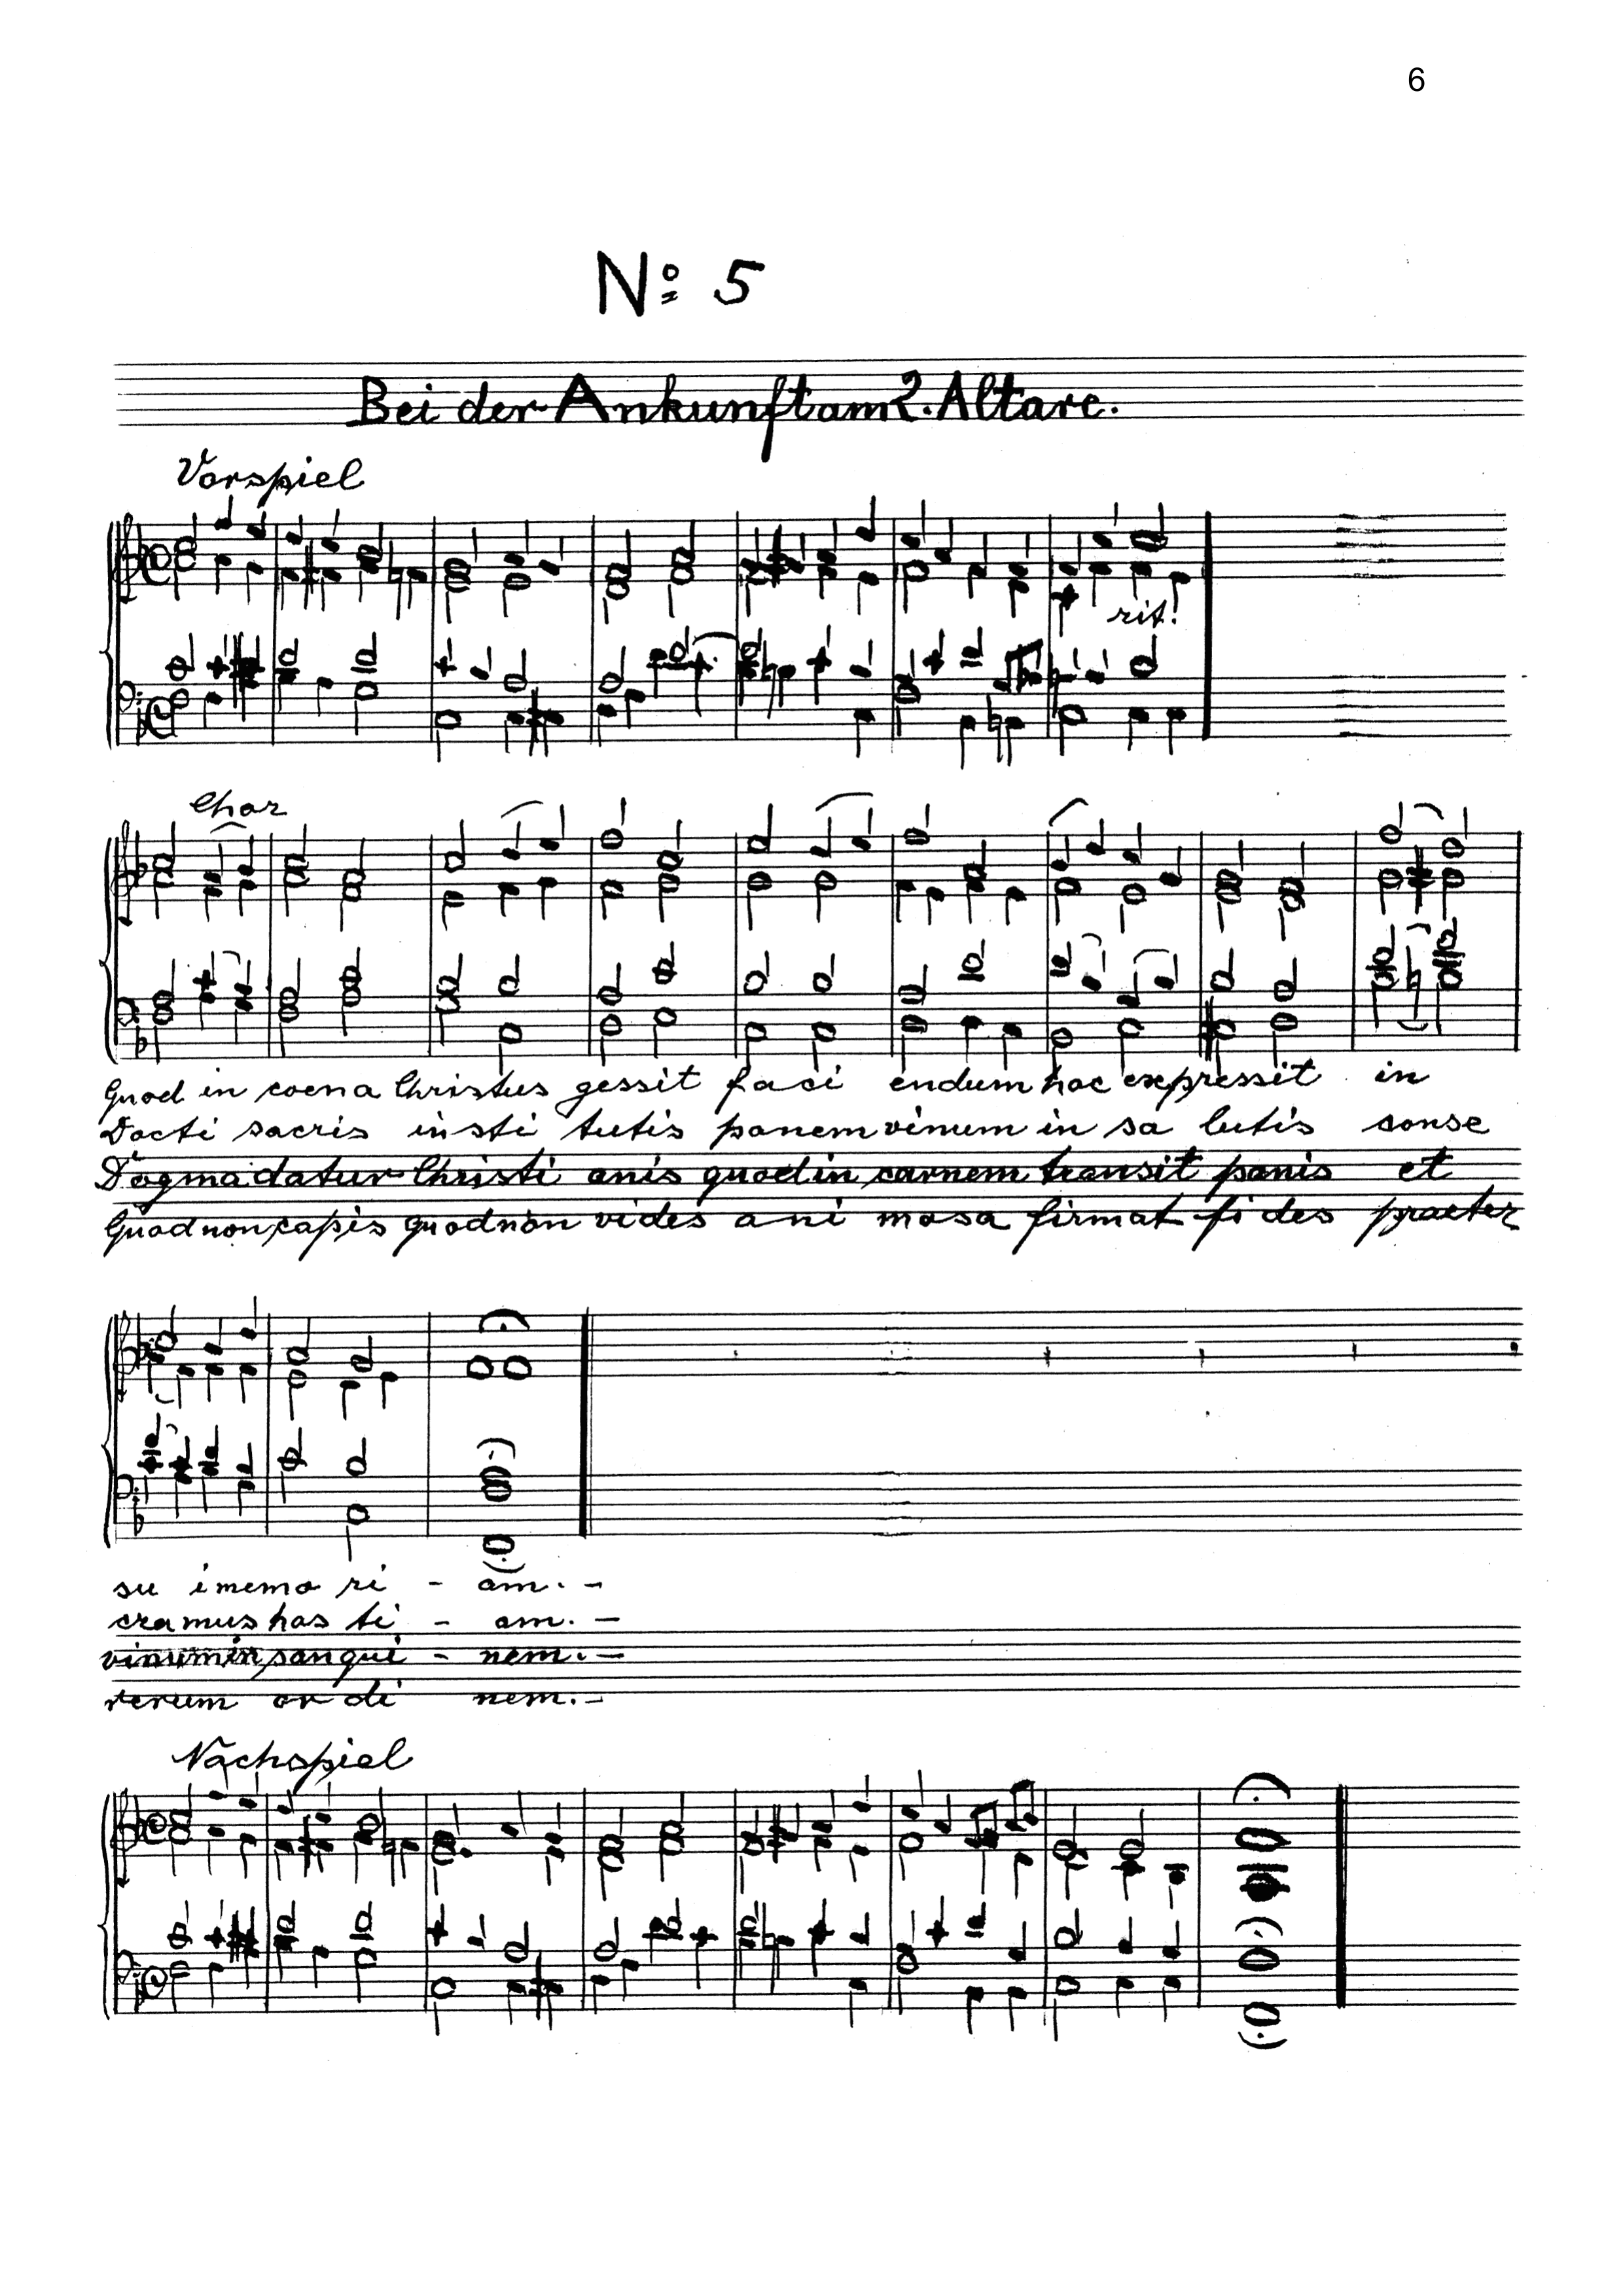 6
No 5
Bei der Ankunft am 2. Altare.
Vorspiel
rit.
Chor
Quod in coena Christus gessit faci endum hoc expressit in
Docti sacris insti tutis panem vinum in sa lutis conse
Dogma datur Christi anis quod in carnem transit panis et
Quod non capis quod non vides ani mosa firmat fi des praeter
su i memo ri - am. -
cramus hos ti - am. -
vinum in sangui - nem. -
rerum or di nem. -
Nachspiel